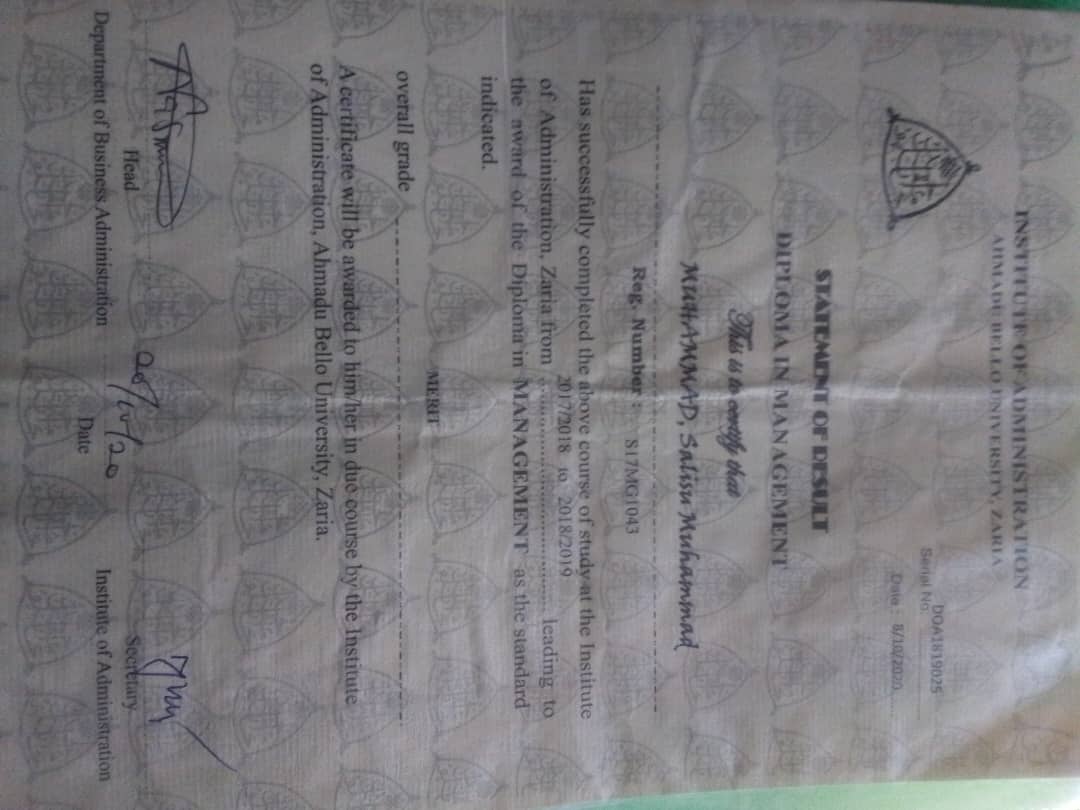 INSTITUTE OF ADMINISTRATION
AHMADU BELLO UNIVERSITY, ZARIA
Serial No. DOA1819025
Date: 8/10/2020
STATEMENT OF RESULT
DIPLOMA IN MANAGEMENT
This is to certify that
MUHAMMAD, Salisu Muhammad
Reg. Number: S17MG1043
Has successfully completed the above course of study at the Institute
of Administration, Zaria from 2017/2018 to 2018/2019 leading to
the award of the Diploma in MANAGEMENT as the standard
indicated.
MERIT
overall grade
A certificate will be awarded to him/her in due course by the Institute
of Administration, Ahmadu Bello University, Zaria.
Head
Department of Business Administration
Date
Secretary
Institute of Administration